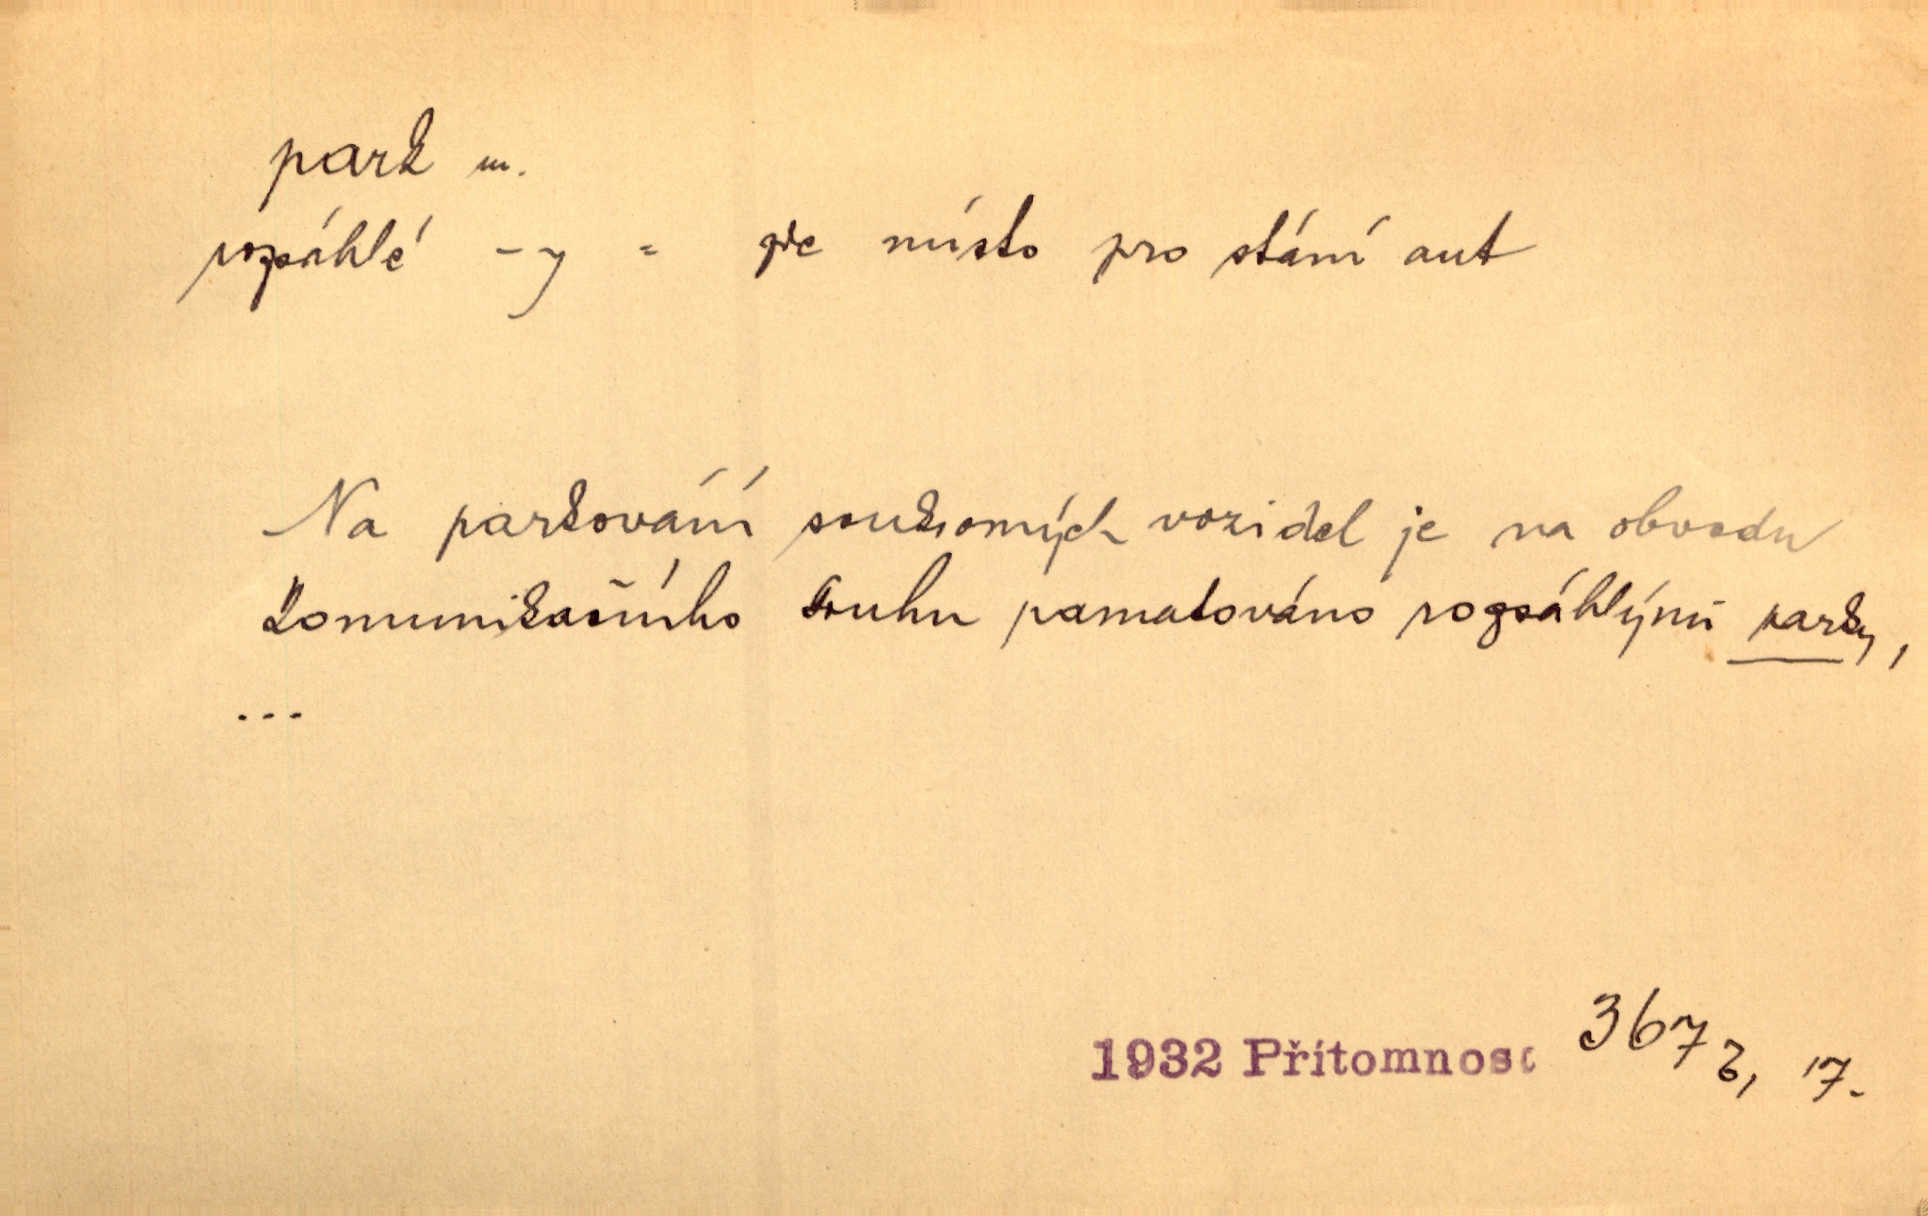 park m.
rozsáhlé -y = zde místo pro stání aut
Na parkování soukromých vozidel je na obvodu
komunikačního kruhu pamatováno rozsáhlými parky,
...
1932 Přítomnost 367 2, 17.